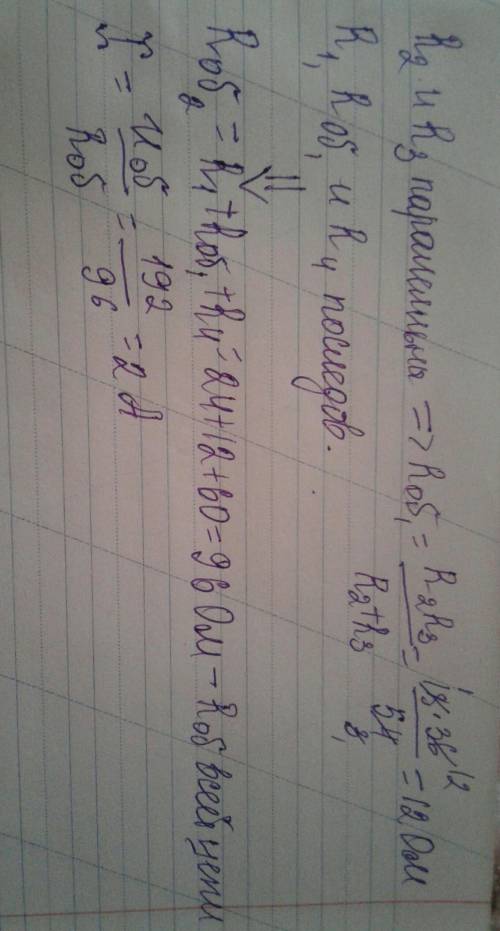 R2 и R3 параллельны => Rоб1 = R2R3 / R2+R3 = 18·36 / 54 = 12 Ом
R1, Rоб1 и R4 последов.
⇓
Rоб2 = R1+Rоб1+R4 = 24+12+60 = 96 Ом – Rоб всей цепи
I = Uоб / Rоб = 192 / 96 = 2 А